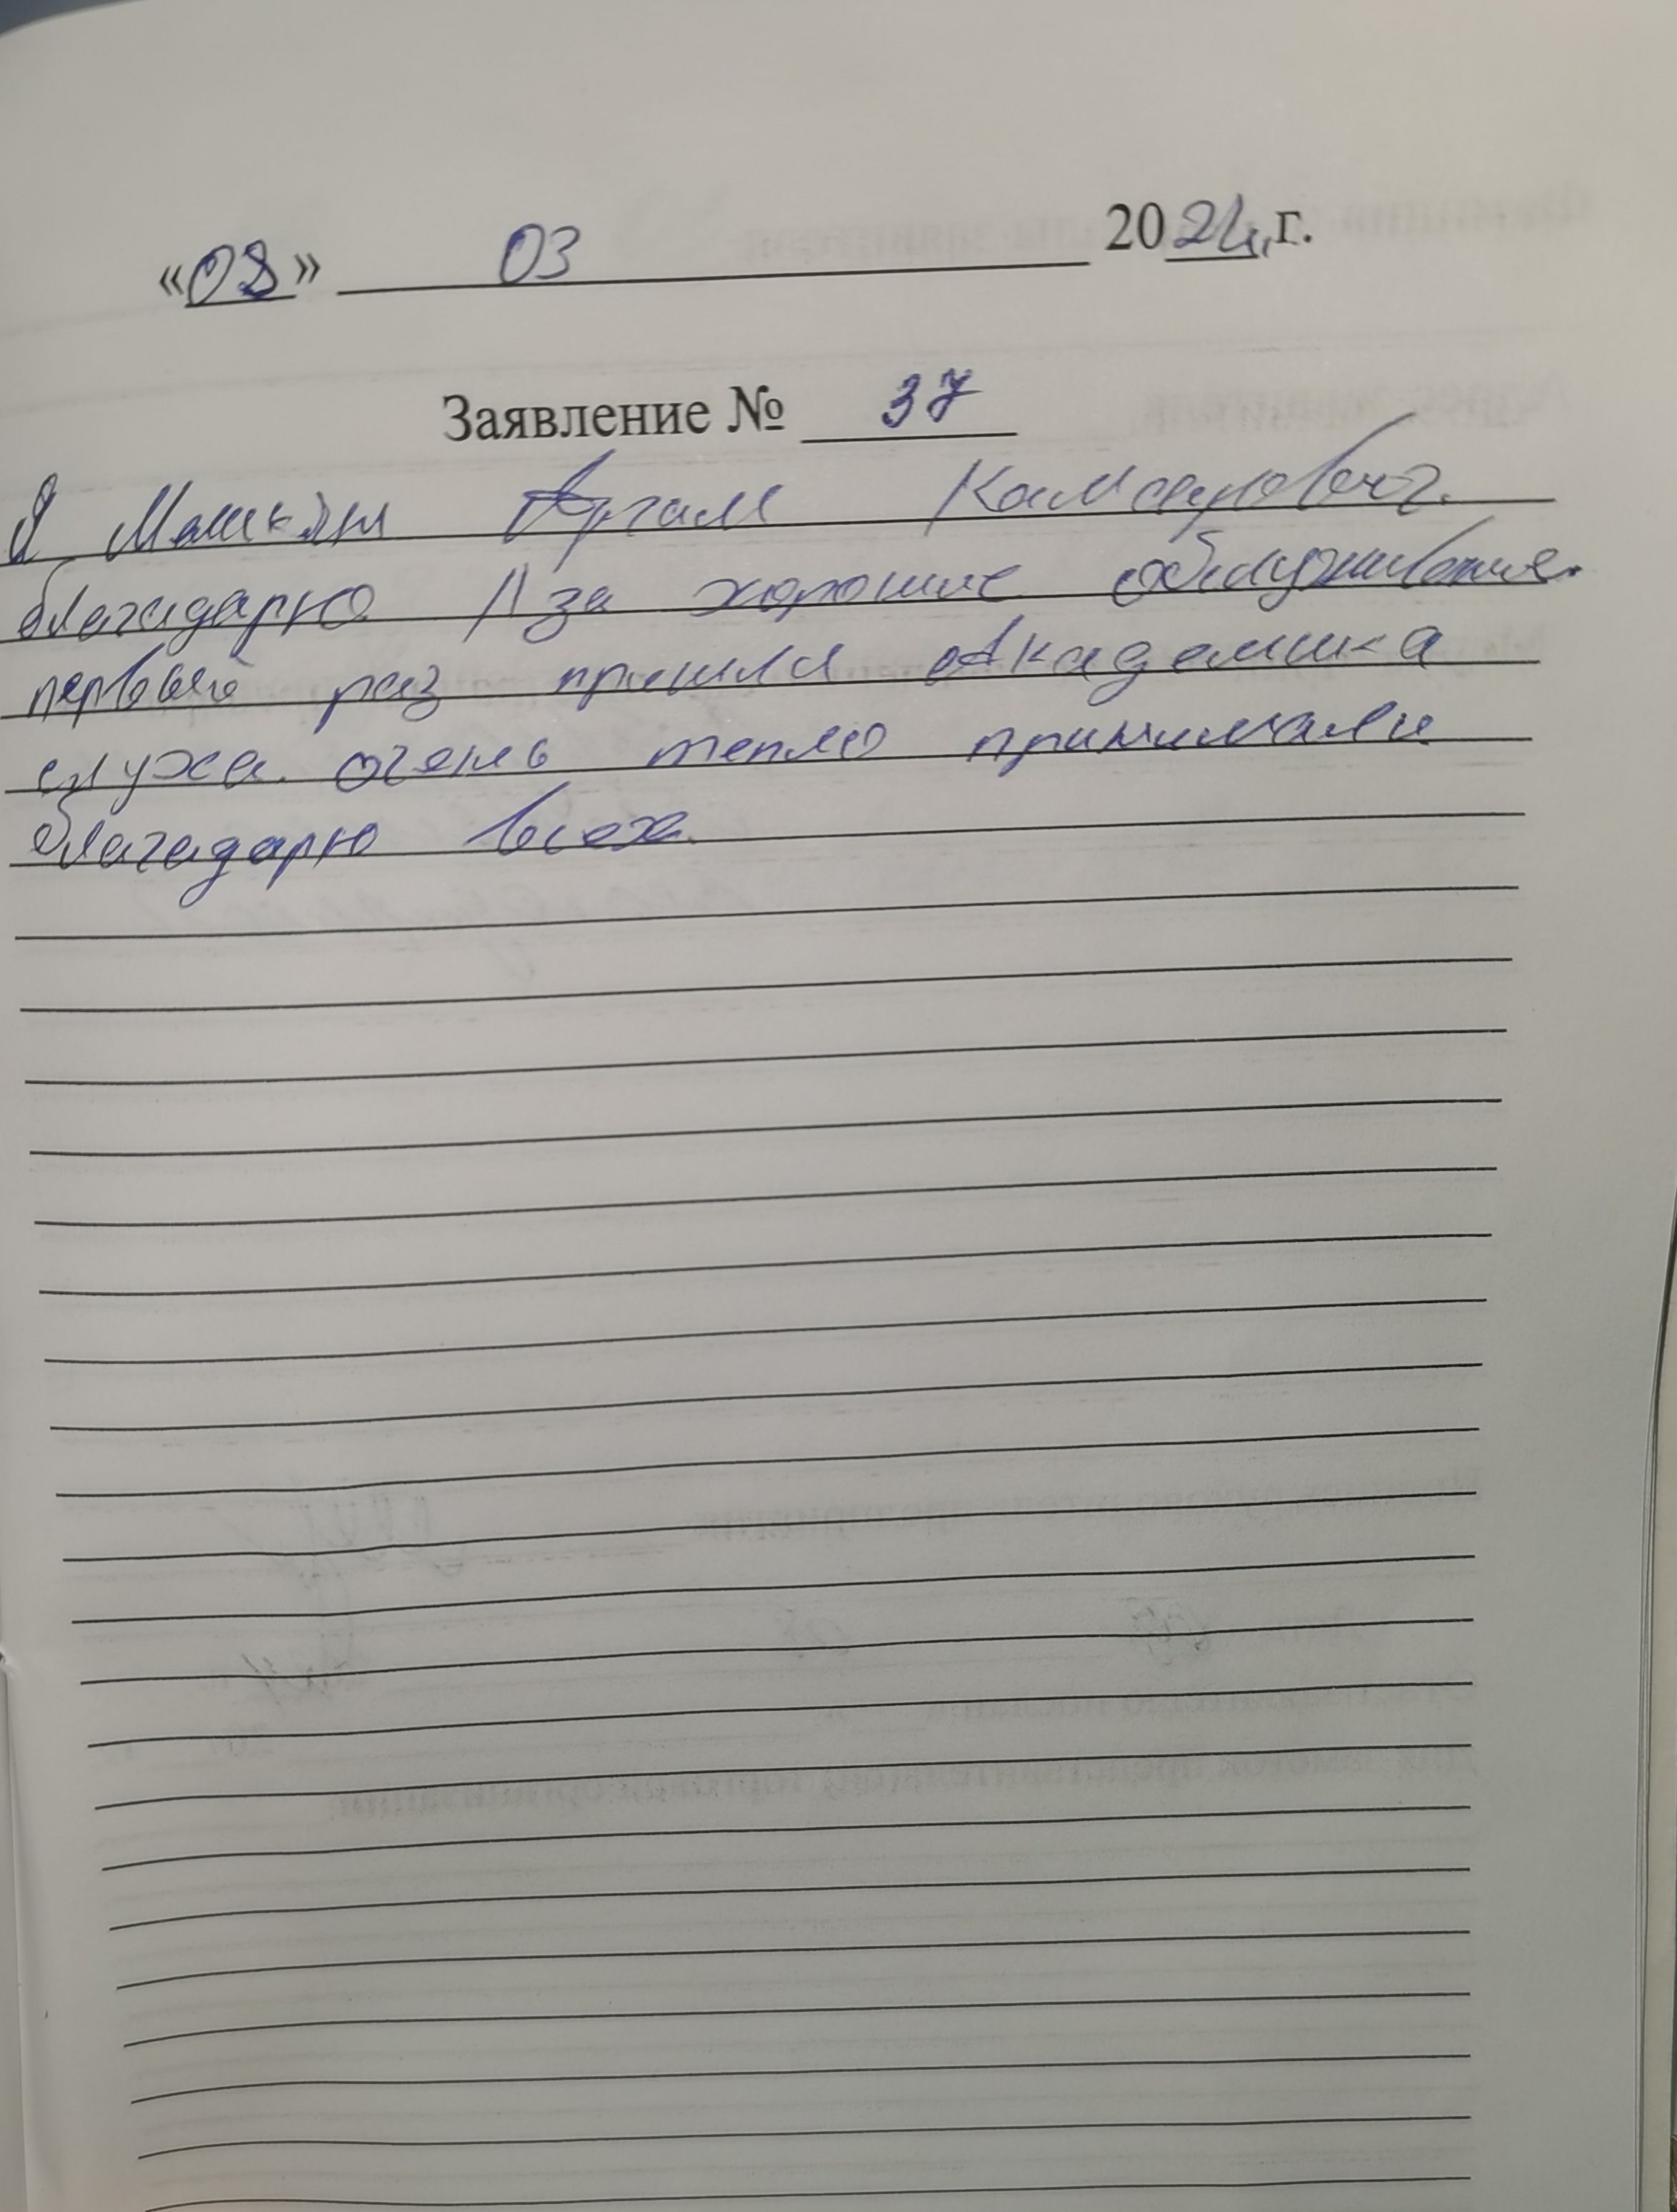 «08» 03 2024 г.
Заявление № 37
Я Аргам
благадарю за хорошие обслуживание.
первый раз пришла Академика
слуха. очень тепло принимали
благадарю всех.